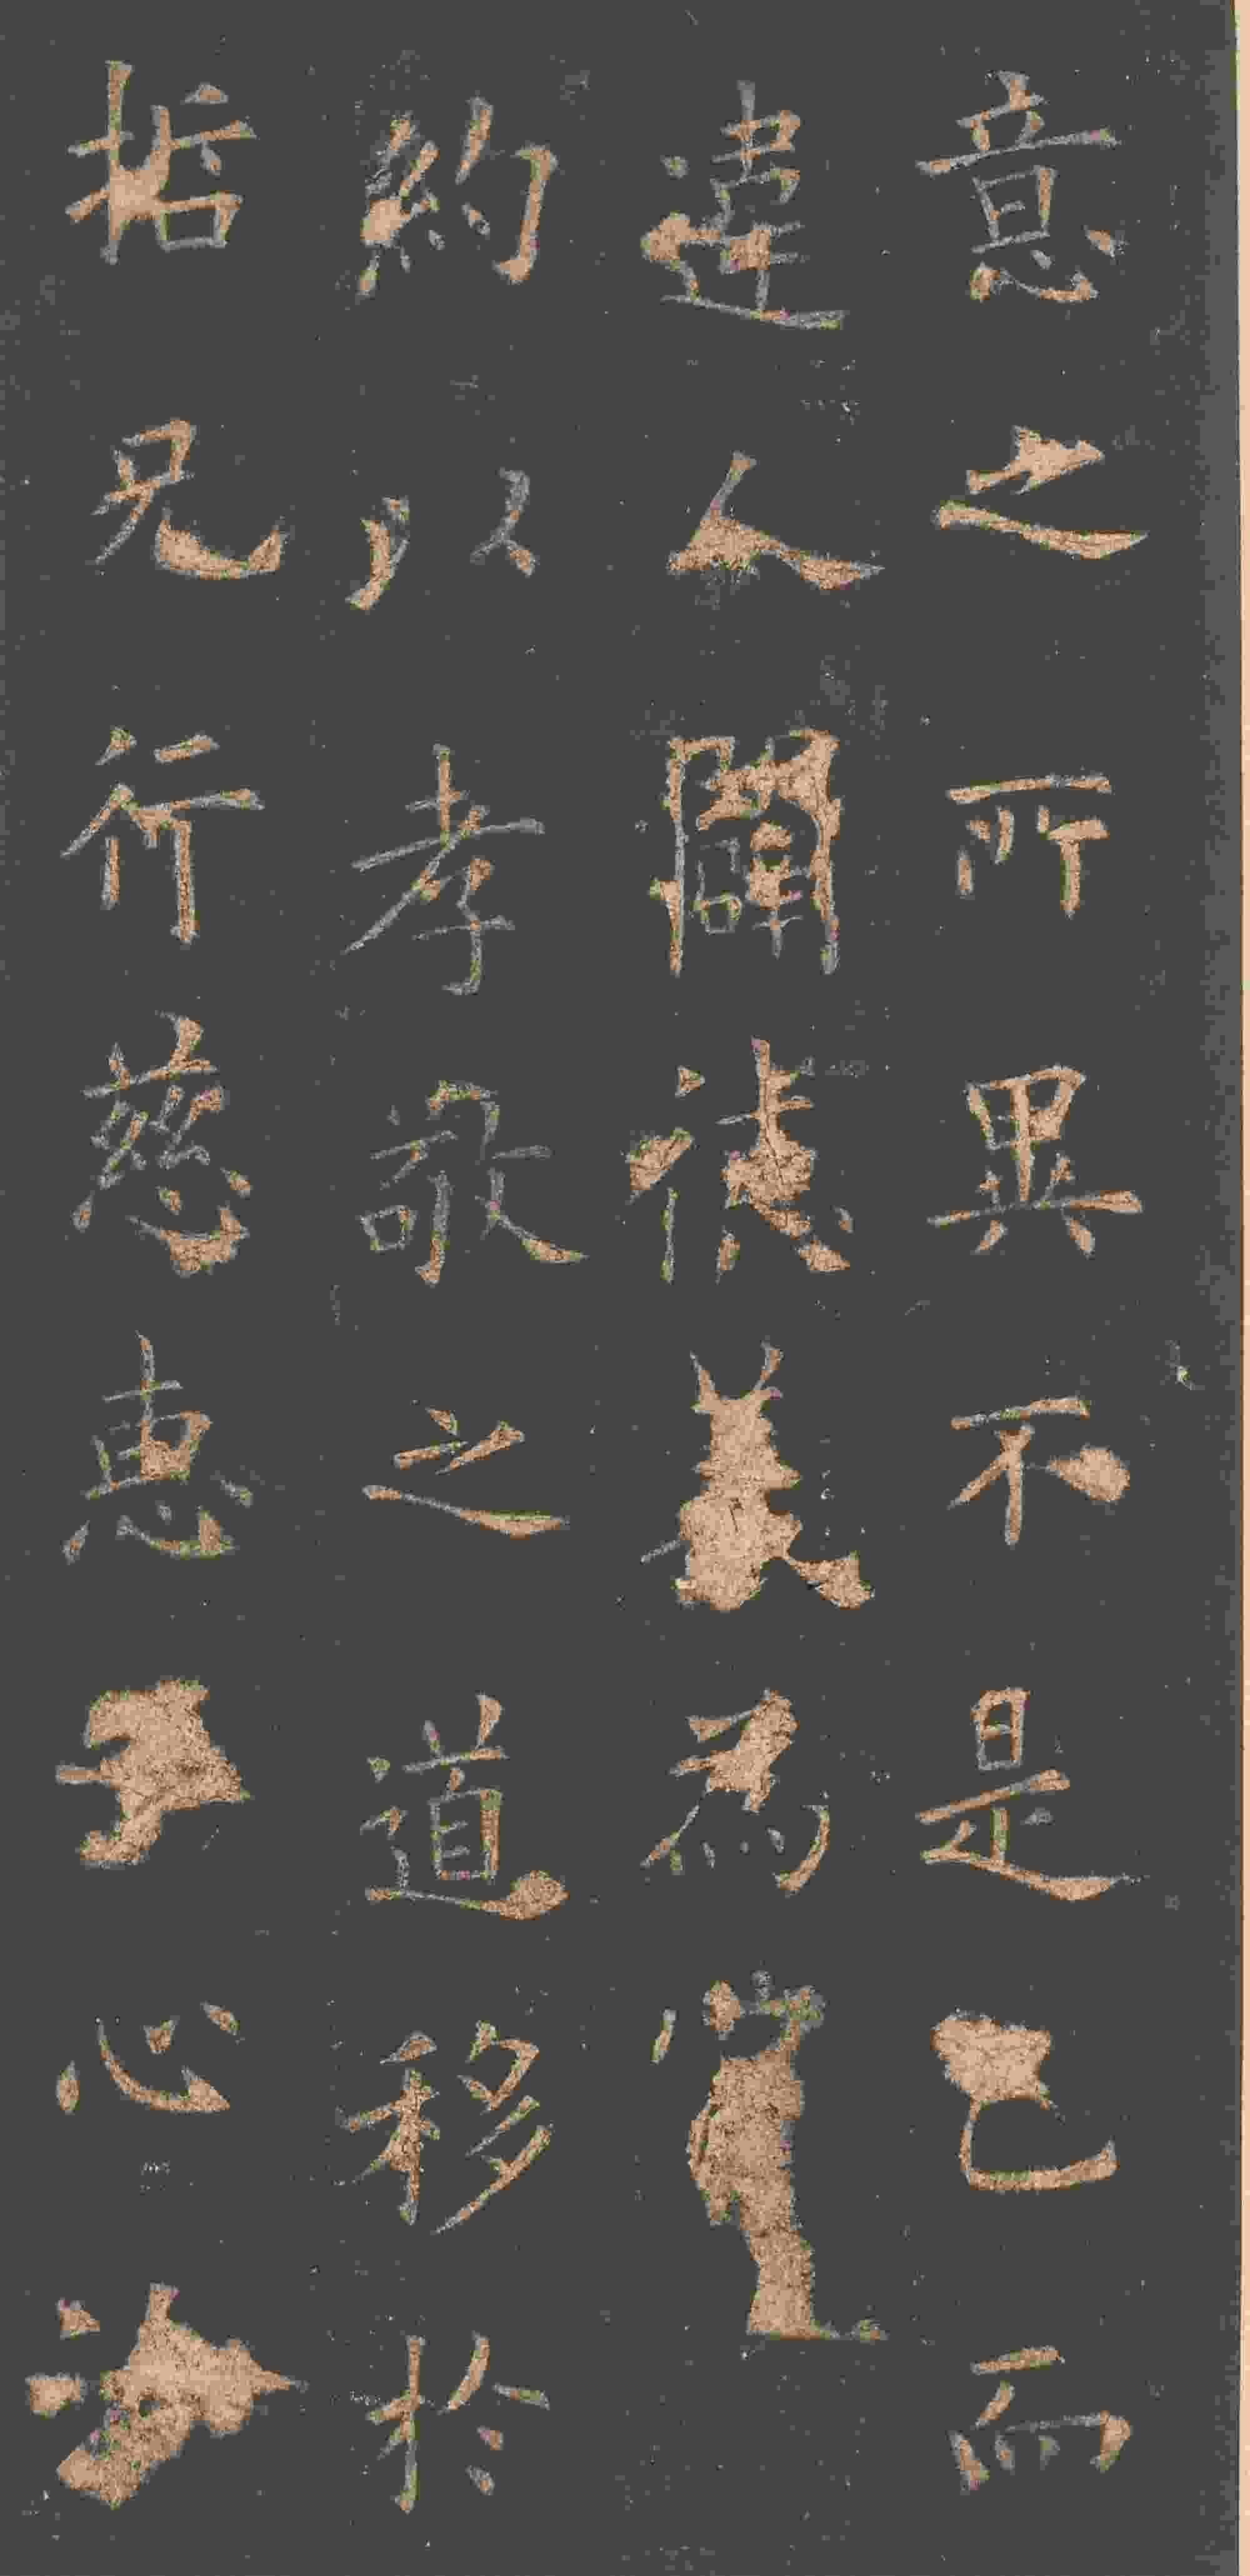 意之所異不是已而
違人義為
約以孝敬之道移於
哲兄行慈惠心